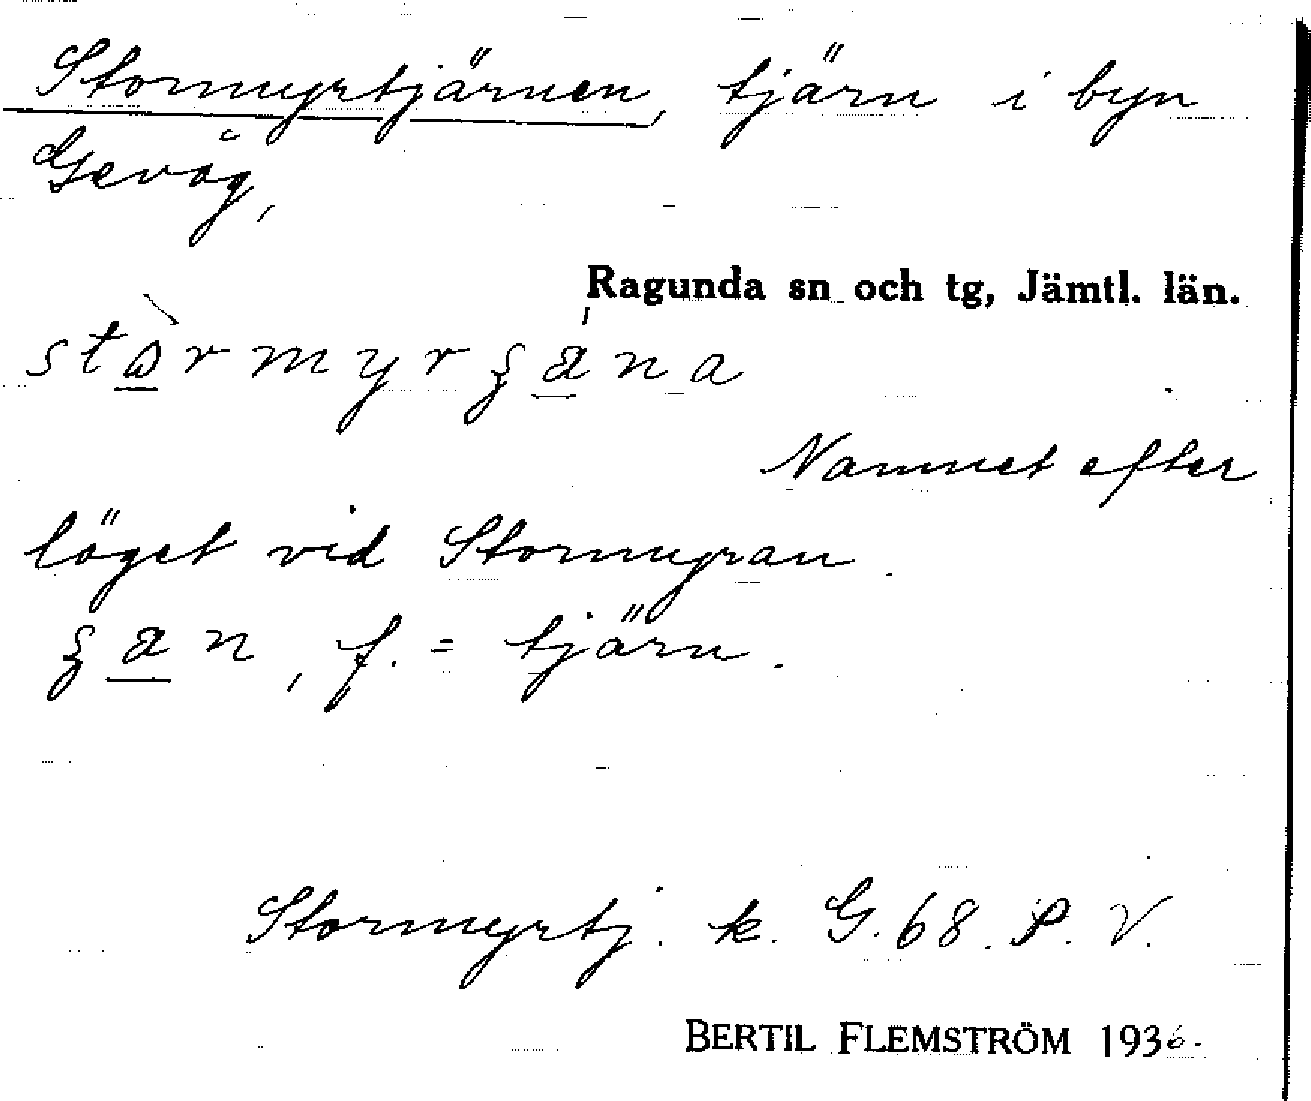 Stormyrtjärnen, tjärn i byn
Gevåg,
Ragunda sn och tg, Jämtl. län.
Namnet efter
läget vid Stormyran.
f. = tjärn.
Stormyrtj. k. G. 68. P. V.
BERTIL FLEMSTRÖM 1936.